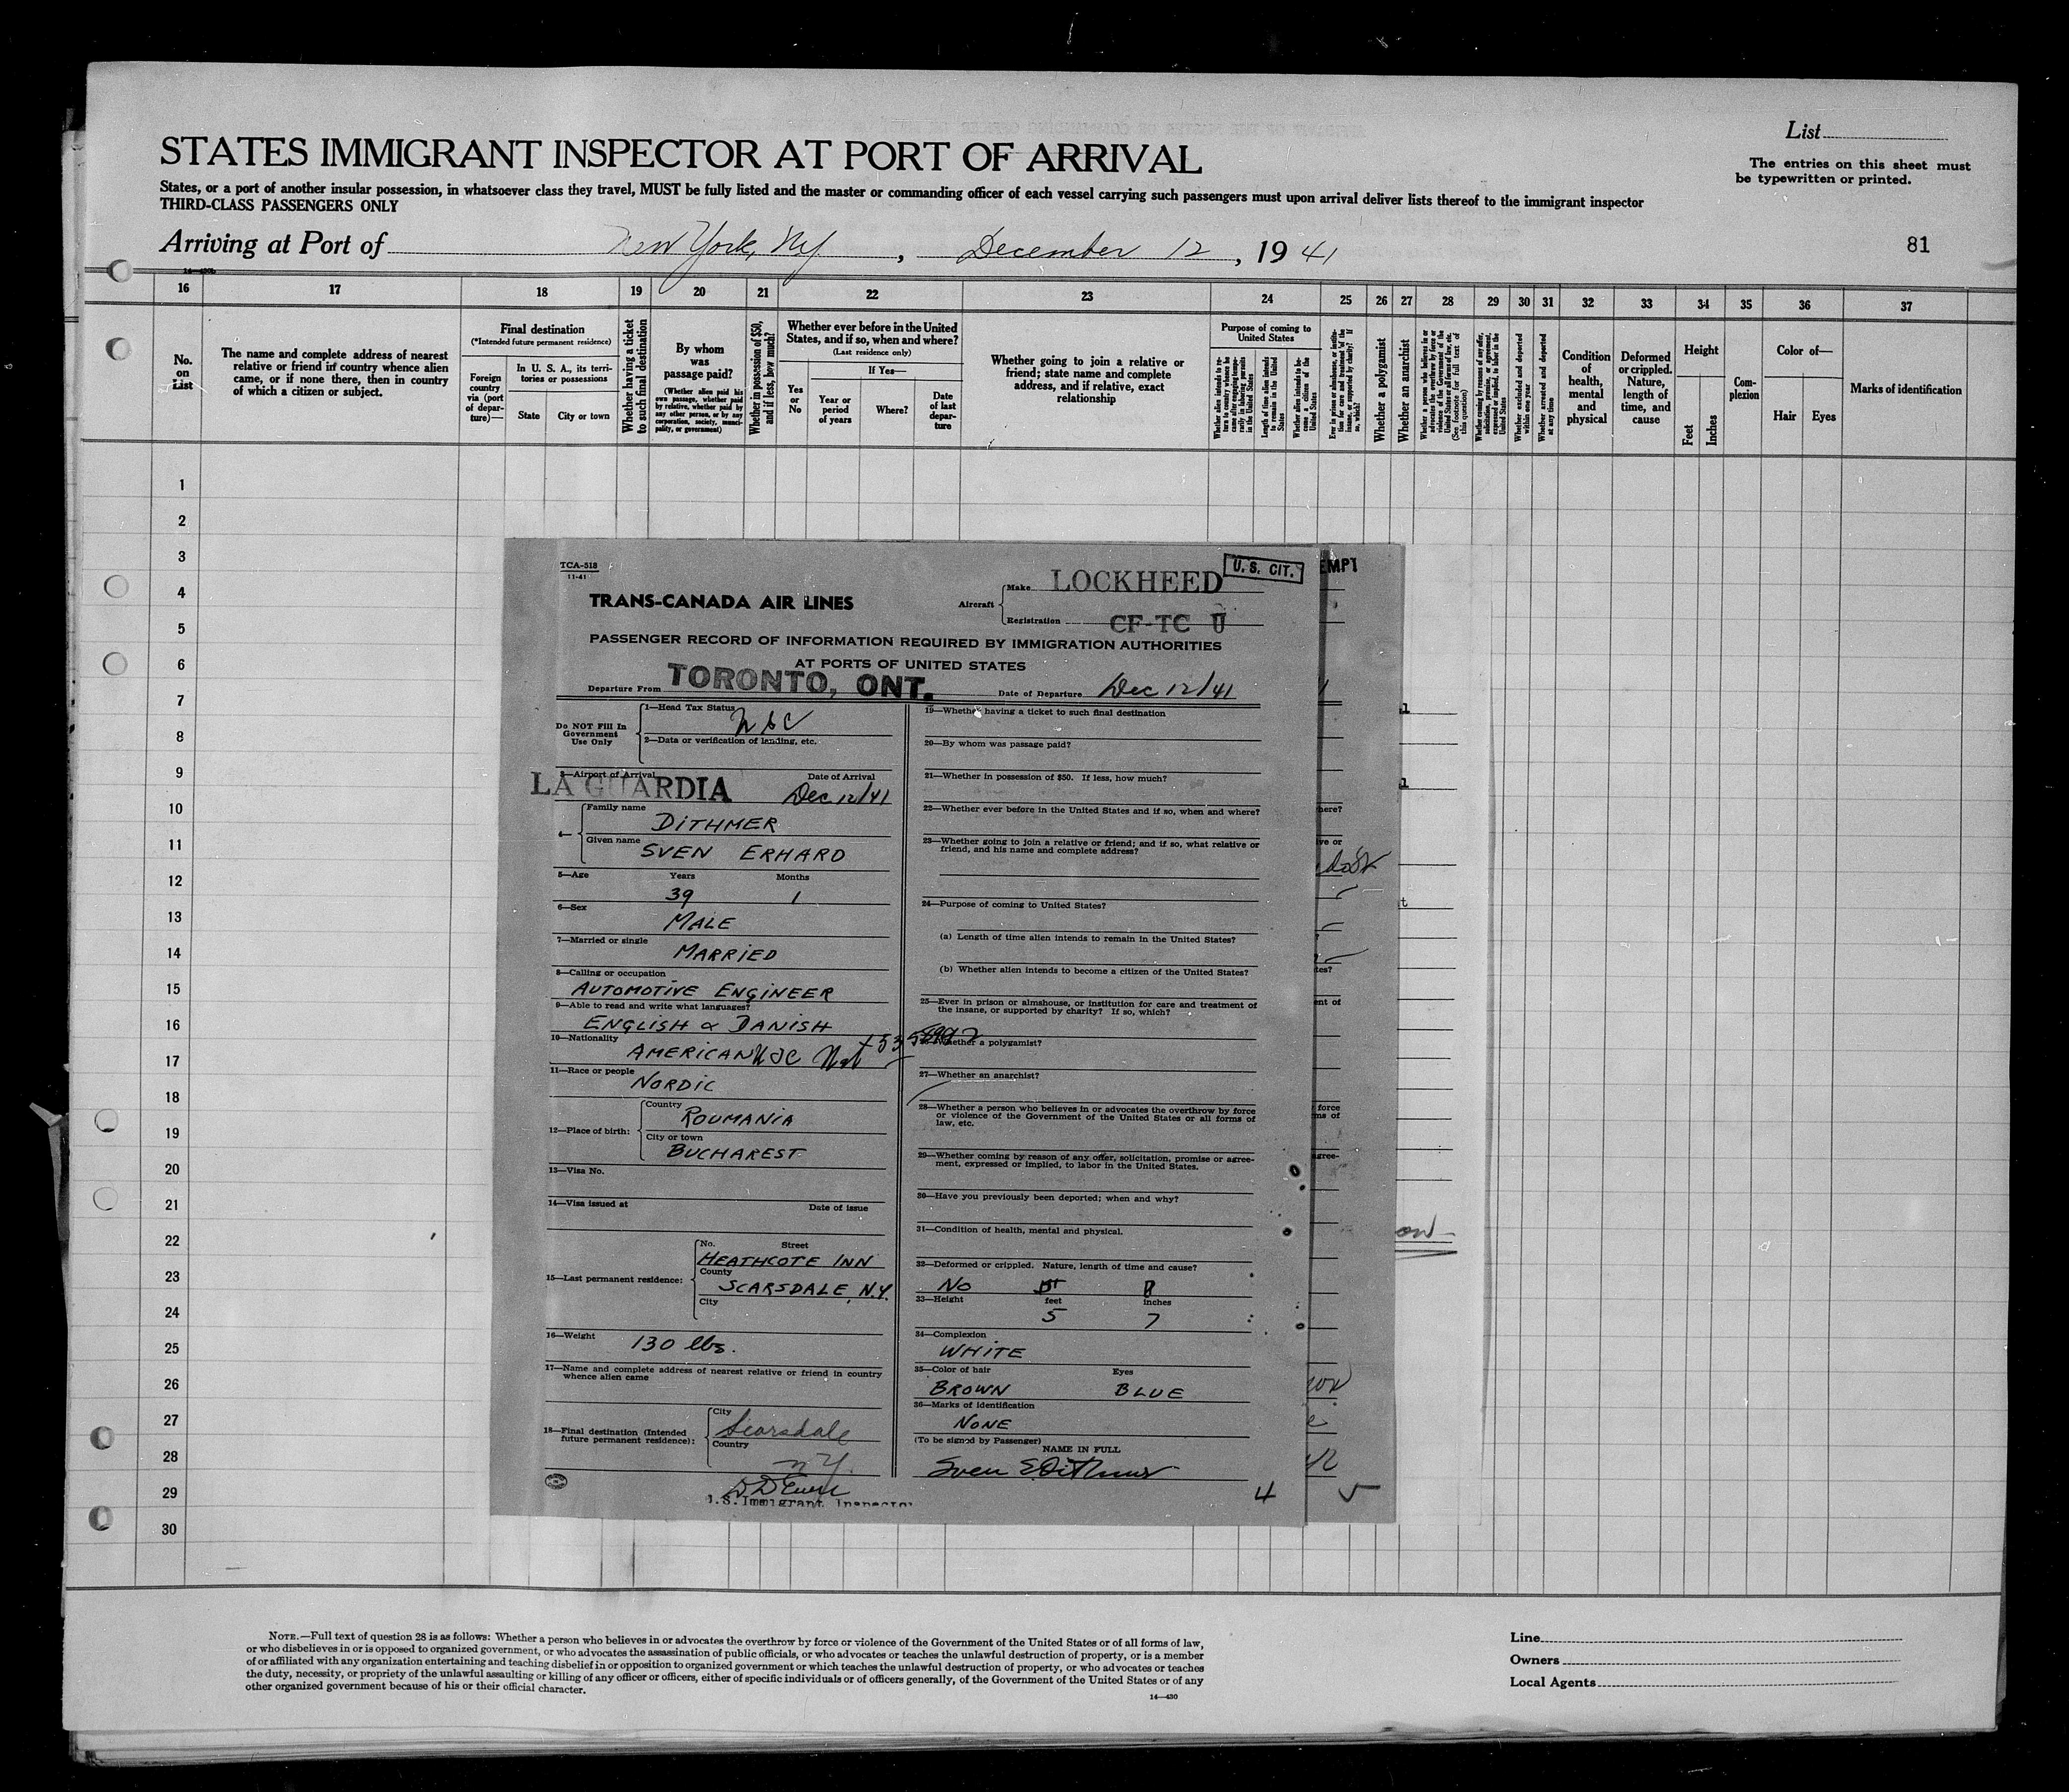 List
STATES IMMIGRANT INSPECTOR AT PORT OF ARRIVAL
The entries on this sheet must
be typewritten or printed.
States, or a port of another insular possession, in whatsoever class they travel, MUST be fully listed and the master or commanding officer of each vessel carrying such passengers must upon arrival deliver lists thereof to the immigrant inspector
THIRD-CLASS PASSENGERS ONLY
Arriving at Port of New York, NY, December 12, 1941
81
16 17 18 19 20 21 22 23 24 25 26 27 28 29 30 31 32 33 34 35 36 37
No.
on
List
The name and complete address of nearest
relative or friend in country whence alien
came, or if none there, then in country
of which a citizen or subject.
Final destination
(*Intended future permanent residence)
Foreign
country
via (port
of depar-
ture)—
In U. S. A., its terri-
tories or possessions
State City or town
Whether having a ticket
to such final destination
By whom
was
passage paid?
(Whether alien paid his
own passage, whether paid
by relative, whether paid by
any other person, or by any
corporation, society, munci-
pality, or government)
Whether in possession of $50,
and if less, how much?
Whether ever before in the United
States, and if so, when and where?
(Last residence only)
Yes
or
No
If Yes—
Year or
period
of years
Where?
Date
of last
depar-
ture
Whether going to join a relative or
friend; state name and complete
address, and if relative, exact
relationship
Purpose of coming to
United States
Length of time alien intends
to remain in the United
States
Whether alien intends to be-
come a citizen of the
United States
Whether a polygamist
Whether an anarchist
Whether excluded and deported
within one year
Whether arrested and deported
at any time
Condition
of
health,
mental
and
physical
Deformed
or crippled.
Nature,
length of
time, and
cause
Height
Feet
Inches
Com-
plexion
Color of—
Hair Eyes
Marks of identification
1
2
3
4
5
6
7
8
9
10
11
12
13
14
15
16
17
18
19
20
21
22
23
24
25
26
27
28
29
30
TCA-518
11-41
U. S. CIT.
EMPT
TRANS-CANADA AIR LINES
Aircraft
Make LOCKHEED
Registration CF-TC U
PASSENGER RECORD OF INFORMATION REQUIRED BY IMMIGRATION AUTHORITIES
AT PORTS OF UNITED STATES
Departure From TORONTO, ONT. Date of Departure Dec 12/41
Do NOT Fill In
Government
Use Only
1—Head Tax Status
2—Data or verification of landing, etc.
3—Airport of Arrival Date of Arrival
LA GUARDIA Dec 12/41
4—
Family name
DITHMER
Given name
SVEN ERHARD
5—Age Years Months
39 1
6—Sex
MALE
7—Married or single
MARRIED
8—Calling or occupation
AUTOMOTIVE ENGINEER
9—Able to read and write what languages?
ENGLISH & DANISH
10—Nationality
AMERICAN
11—Race or people
NORDIC
12—Place of birth:
Country
ROUMANIA
City or town
BUCHAREST
13—Visa No.
14—Visa issued at Date of issue
15—Last permanent residence:
No. Street
HEATHCOTE INN
County
SCARSDALE, N.Y.
City
16—Weight 130 lbs.
17—Name and complete address of nearest relative or friend in country
whence alien came
18—Final destination (Intended
future permanent residence):
City
Scarsdale
Country
N.Y.
U.S. Immigrant Inspector
19—Whether having a ticket to such final destination
20—By whom was passage paid?
21—Whether in possession of $50. If less, how much?
22—Whether ever before in the United States and if so, when and where?
23—Whether going to join a relative or friend; and if so, what relative or
friend, and his name and complete address?
24—Purpose of coming to United States?
(a) Length of time alien intends to remain in the United States?
(b) Whether alien intends to become a citizen of the United States?
25—Ever in prison or almshouse, or institution for care and treatment of
the insane, or supported by charity? If so, which?
26—Whether a polygamist?
27—Whether an anarchist?
28—Whether a person who believes in or advocates the overthrow by force
or violence of the Government of the United States or all forms of
law, etc.
29—Whether coming by reason of any offer, solicitation, promise or agree-
ment, expressed or implied, to labor in the United States.
30—Have you previously been deported; when and why?
31—Condition of health, mental and physical.
32—Deformed or crippled. Nature, length of time and cause?
NO
33—Height feet inches
5 7
34—Complexion
WHITE
35—Color of hair Eyes
BROWN BLUE
36—Marks of identification
NONE
(To be signed by Passenger)
NAME IN FULL
Sven E Dithmer
4
NOTE.—Full text of question 28 is as follows: Whether a person who believes in or advocates the overthrow by force or violence of the Government of the United States or of all forms of law,
or who disbelieves in or is opposed to organized government, or who advocates the assassination of public officials, or who advocates or teaches the unlawful destruction of property, or is a member
of or affiliated with any organization entertaining and teaching disbelief in or opposition to organized government or which teaches the unlawful destruction of property, or who advocates or teaches
the duty, necessity, or propriety of the unlawful assaulting or killing of any officer or officers, either of specific individuals or of officers generally, of the Government of the United States or of any
other organized government because of his or their official character.
14—430
Line
Owners
Local Agents